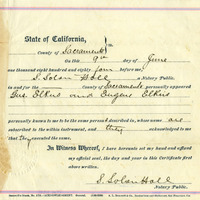 State of California,
County of Sacramento } ss.
On this 9th day of June
one thousand eight hundred and eighty four before me,
S. Solon Holl a Notary Public,
in and for the County of Sacramento personally appeared
Gus. Elkus and Eugene Elkus
personally known to me to be the same persons described in, whose names are
subscribed to the within instrument, and they acknowledged to me
that they executed the same.
In Witness Whereof, I have hereunto set my hand and affixed
my official seal, the day and year in this Certificate first
above written.
S. Solon Holl
Notary Public.